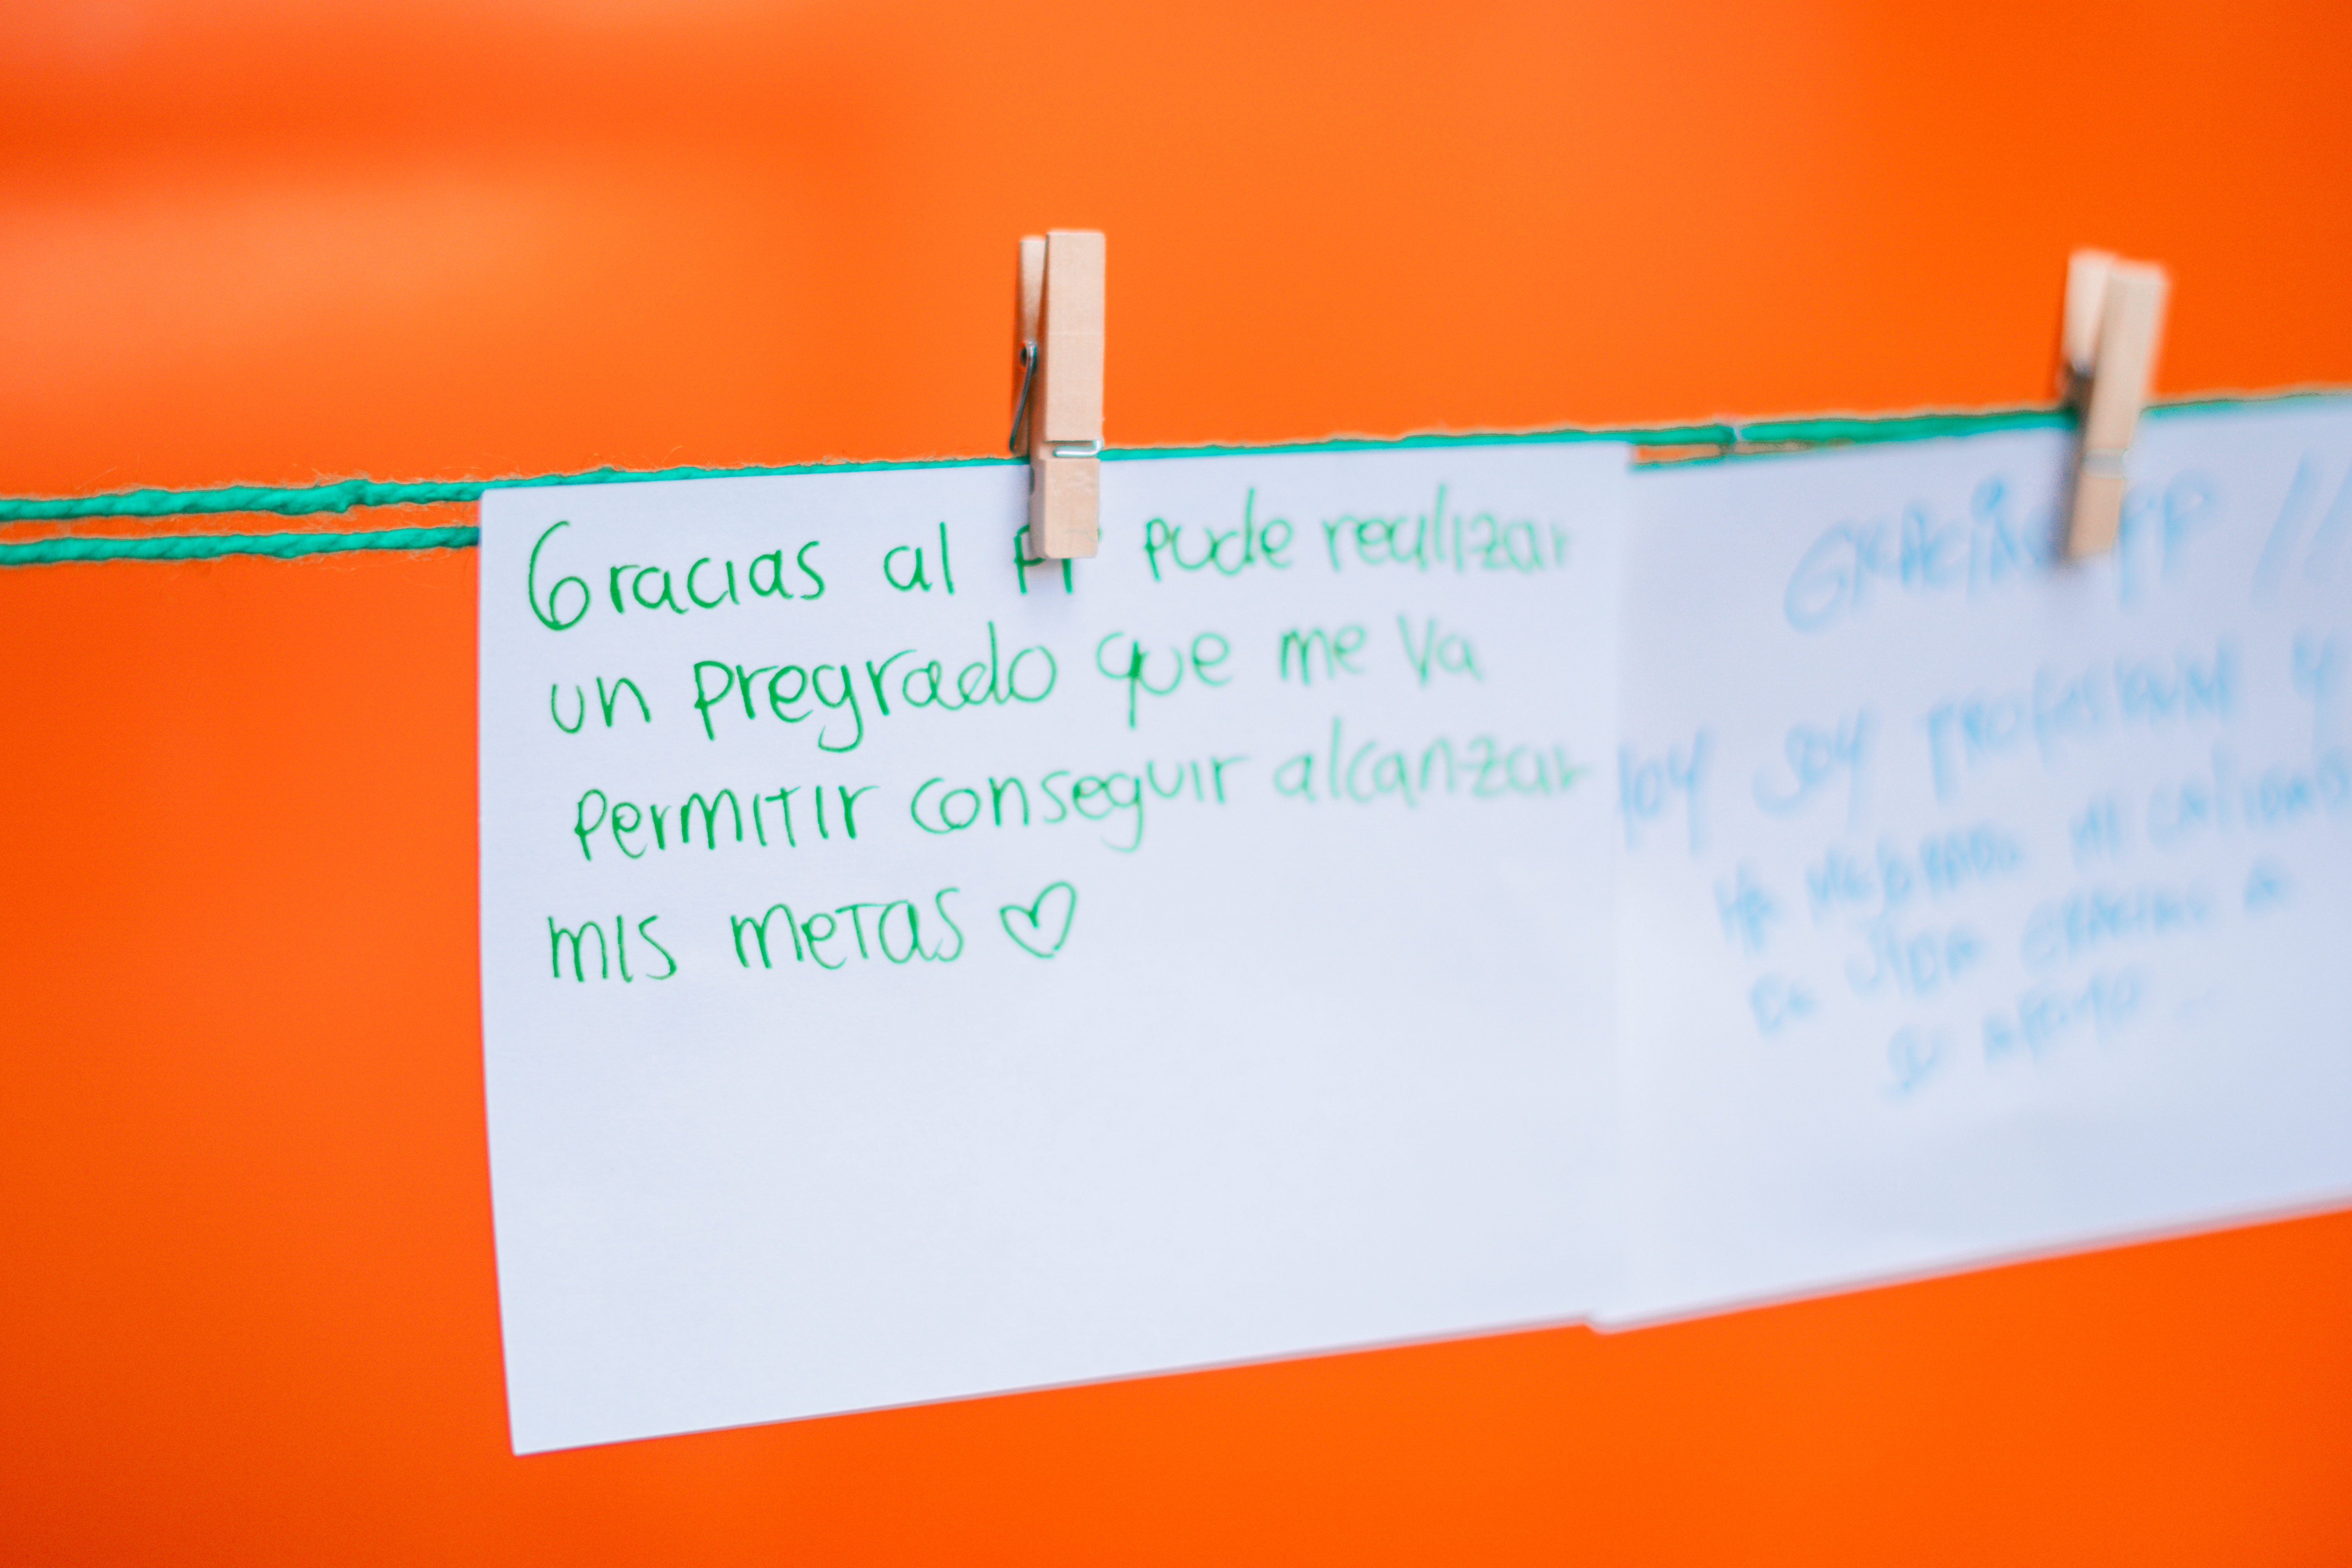 Gracias al PP pude realizar
un pregrado que me va
permitir conseguir alcanzar
mis metas
GRACIAS PP //
HOY SOY PROFESIONAL Y
HA MEJORADO MI CALIDAD
DE VIDA GRACIAS A
SU APOYO ...